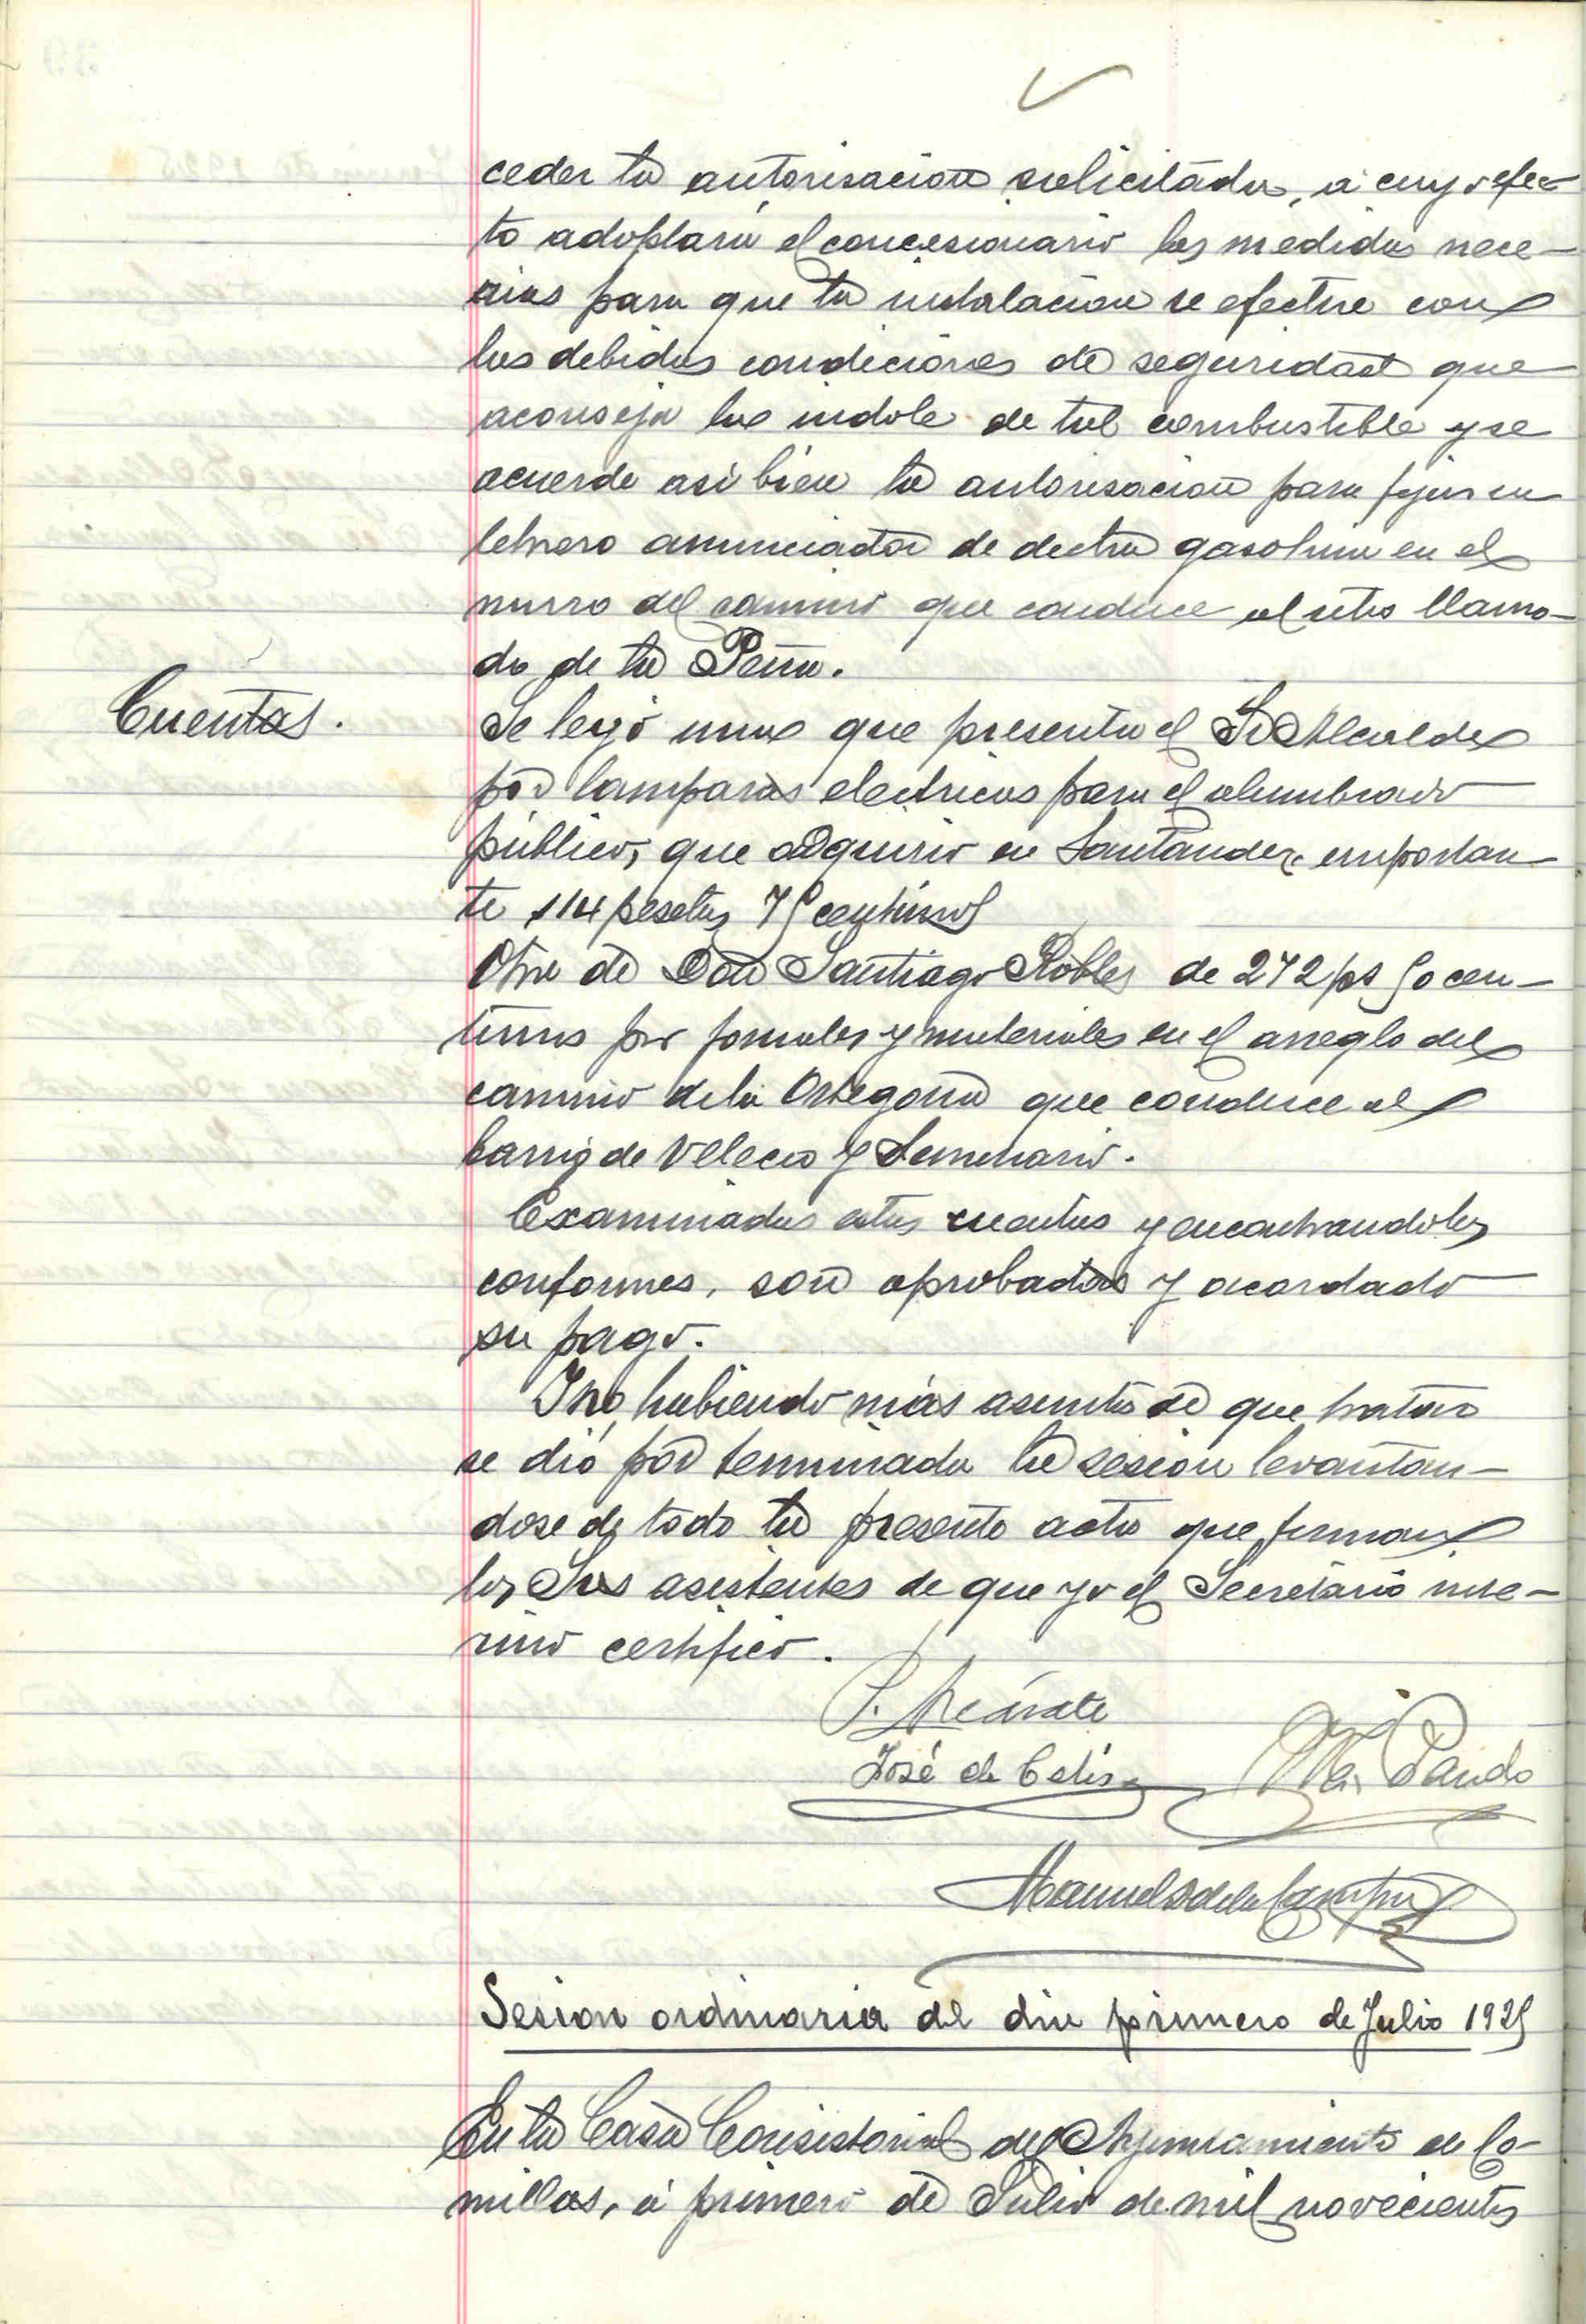 ceder la autorisacion solicitada, a cuyo efec-
to adoptará el concesionario las medidas nece-
arias para que la instalacion se efectue con
las debidas condiciones de seguridad que
aconseja la indole de tal combustible y se
acuerde asi bien la autorisacion para fijar un
letrero anunciador de dicha gasolina en el
murro del camino que conduce al sitio llama-
do de la Peña.
Cuentas.
Se leyó una que presenta el Sr Alcalde
por lamparas electricas para el alumbrado
público, que adquirio en Santander importan-
te 114 pesetas 75 centimos
Otra de Don Santiago Robles de 272 pts 50 cen-
timos por jornales y materiales en el arreglo del
camino de la Ortegona que conduce al
barrio de Velecio y Seminario.
Examinadas estas cuentas y encontrandolas
conformes, son aprobadas y acordado
su pago.
Y no habiendo más asuntos de que tratar
se dió por terminada la sesion levantan-
dose de todo la presente acta que firman
los Sres asistentes de que yo el Secretario inte-
rino certifico.
José de Celis
Pando
Manuel de la Campa
Sesion ordinaria del dia primero de Julio 1925
En la Casa Consistorial del Ayuntamiento de Co-
millas, á primero de Julio de mil novecientos